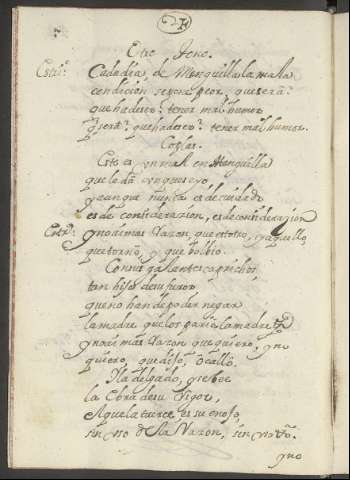 Otro Tono.
Estrº. Cada dia, de Menguilla la mala
condicion, se pone peor, que será?
que ha de ser? tener mal humor
q̃ será? que ha de ser? tener mal humor.
Coplas.
Este es un mal en Menguilla
que le dá
y aunque nunca es de cuidado
es de consideracion, es de consideracion
Estrº. y no ai mas razon, que esto, y aquello,
que torno, y que bolbio.
Con mil galantes caprichos,
tan hijos de su furor
que no han de poder negar
la madre que los pario la madre &
y no ai mas razon que quiero, y no
quiero, que dijo, ò calló.
Ila delgado, y
la Obra de su Vigor,
el enojo,
sin uso de la Razon, sin uso &.
y no